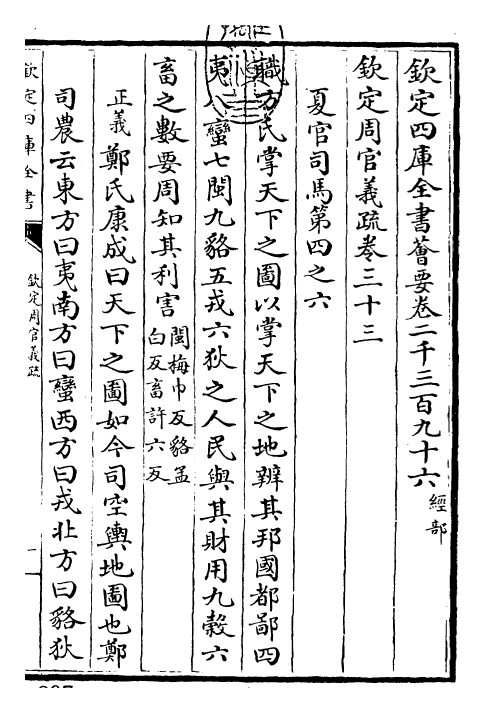 欽定四庫全書薈要卷二千三百九十六經部
欽定周官義疏卷三十三
夏官司馬第四之六
職方氏掌天下之圖以掌天下之地辨其邦國都鄙四
夷八蠻七閩九貉五戎六狄之人民與其財用九穀六
畜之數要周知其利害閩梅巾反貉孟
白反畜許六反
正義鄭氏康成曰天下之圖如今司空輿地圖也鄭
司農云東方曰夷南方曰蠻西方曰戎北方曰貉狄
欽定四庫全書
欽定周官義疏
一